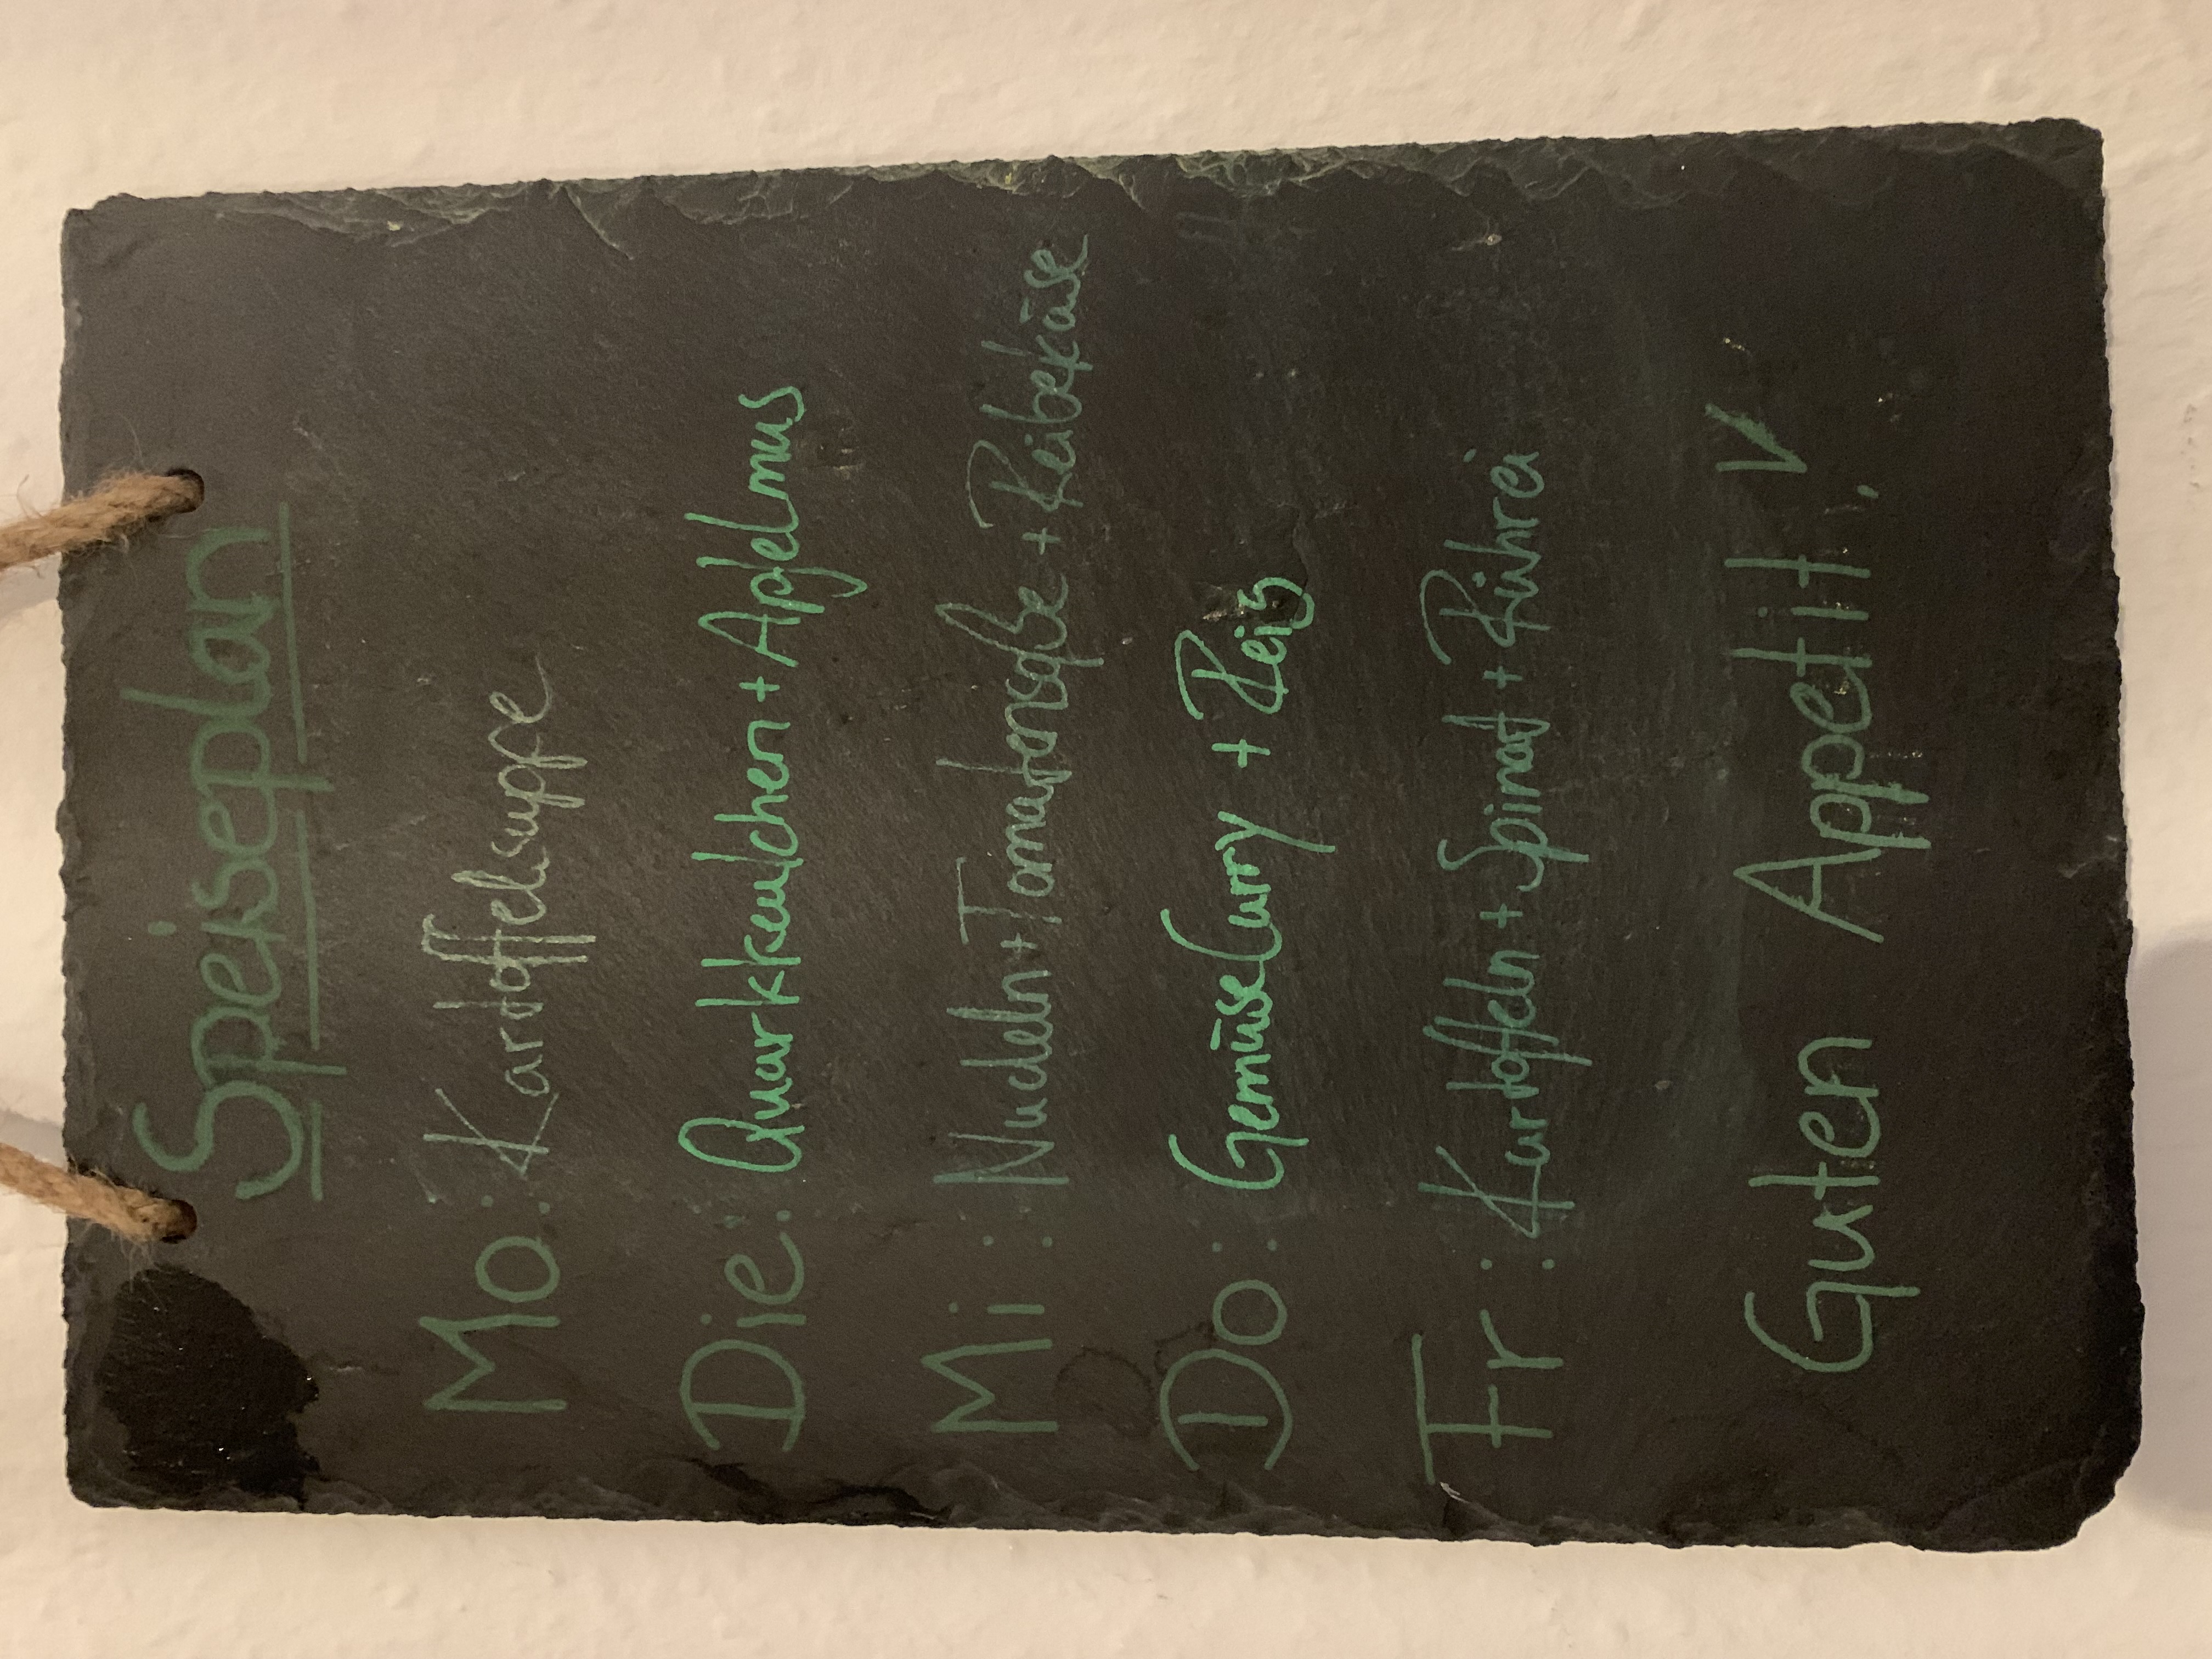 Speiseplan
Mo: Kartoffelsuppe
Die: Quarkkeulchen + Apfelmus
Mi: Nudeln + Tomatensoße + Reibekäse
Do: GemüseCurry + Reis
Fr: Kartoffeln + Spinat + Rührei
Guten Appetit!